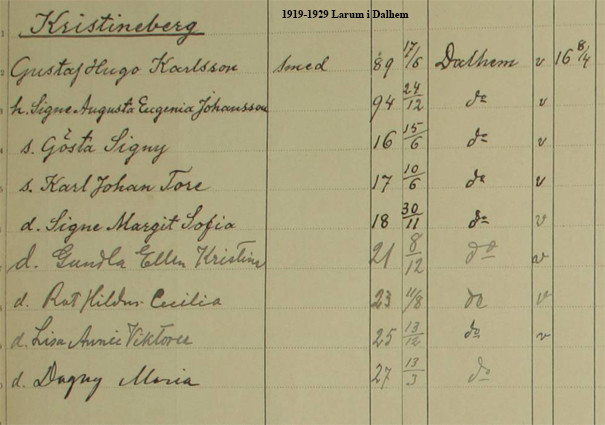 1919-1929 Larum i Dalhem
Kristineberg
Gustaf Hugo Karlsson smed 89 17/6 Dalhem v 16 8/4
h. Signe Augusta Eugenia Johansson 94 24/12 do v
s. Gösta Signy 16 15/6 do v
s. Karl Johan Tore 17 10/6 do v
d. Signe Margit Sofia 18 30/11 do v
d. Gunilla Ellen Kristina 21 8/12 do v
d. Rut Hildur Cecilia 23 11/8 do v
d. Lisa Annie Viktoria 25 13/12 do v
d. Dagny Maria 27 13/3 do